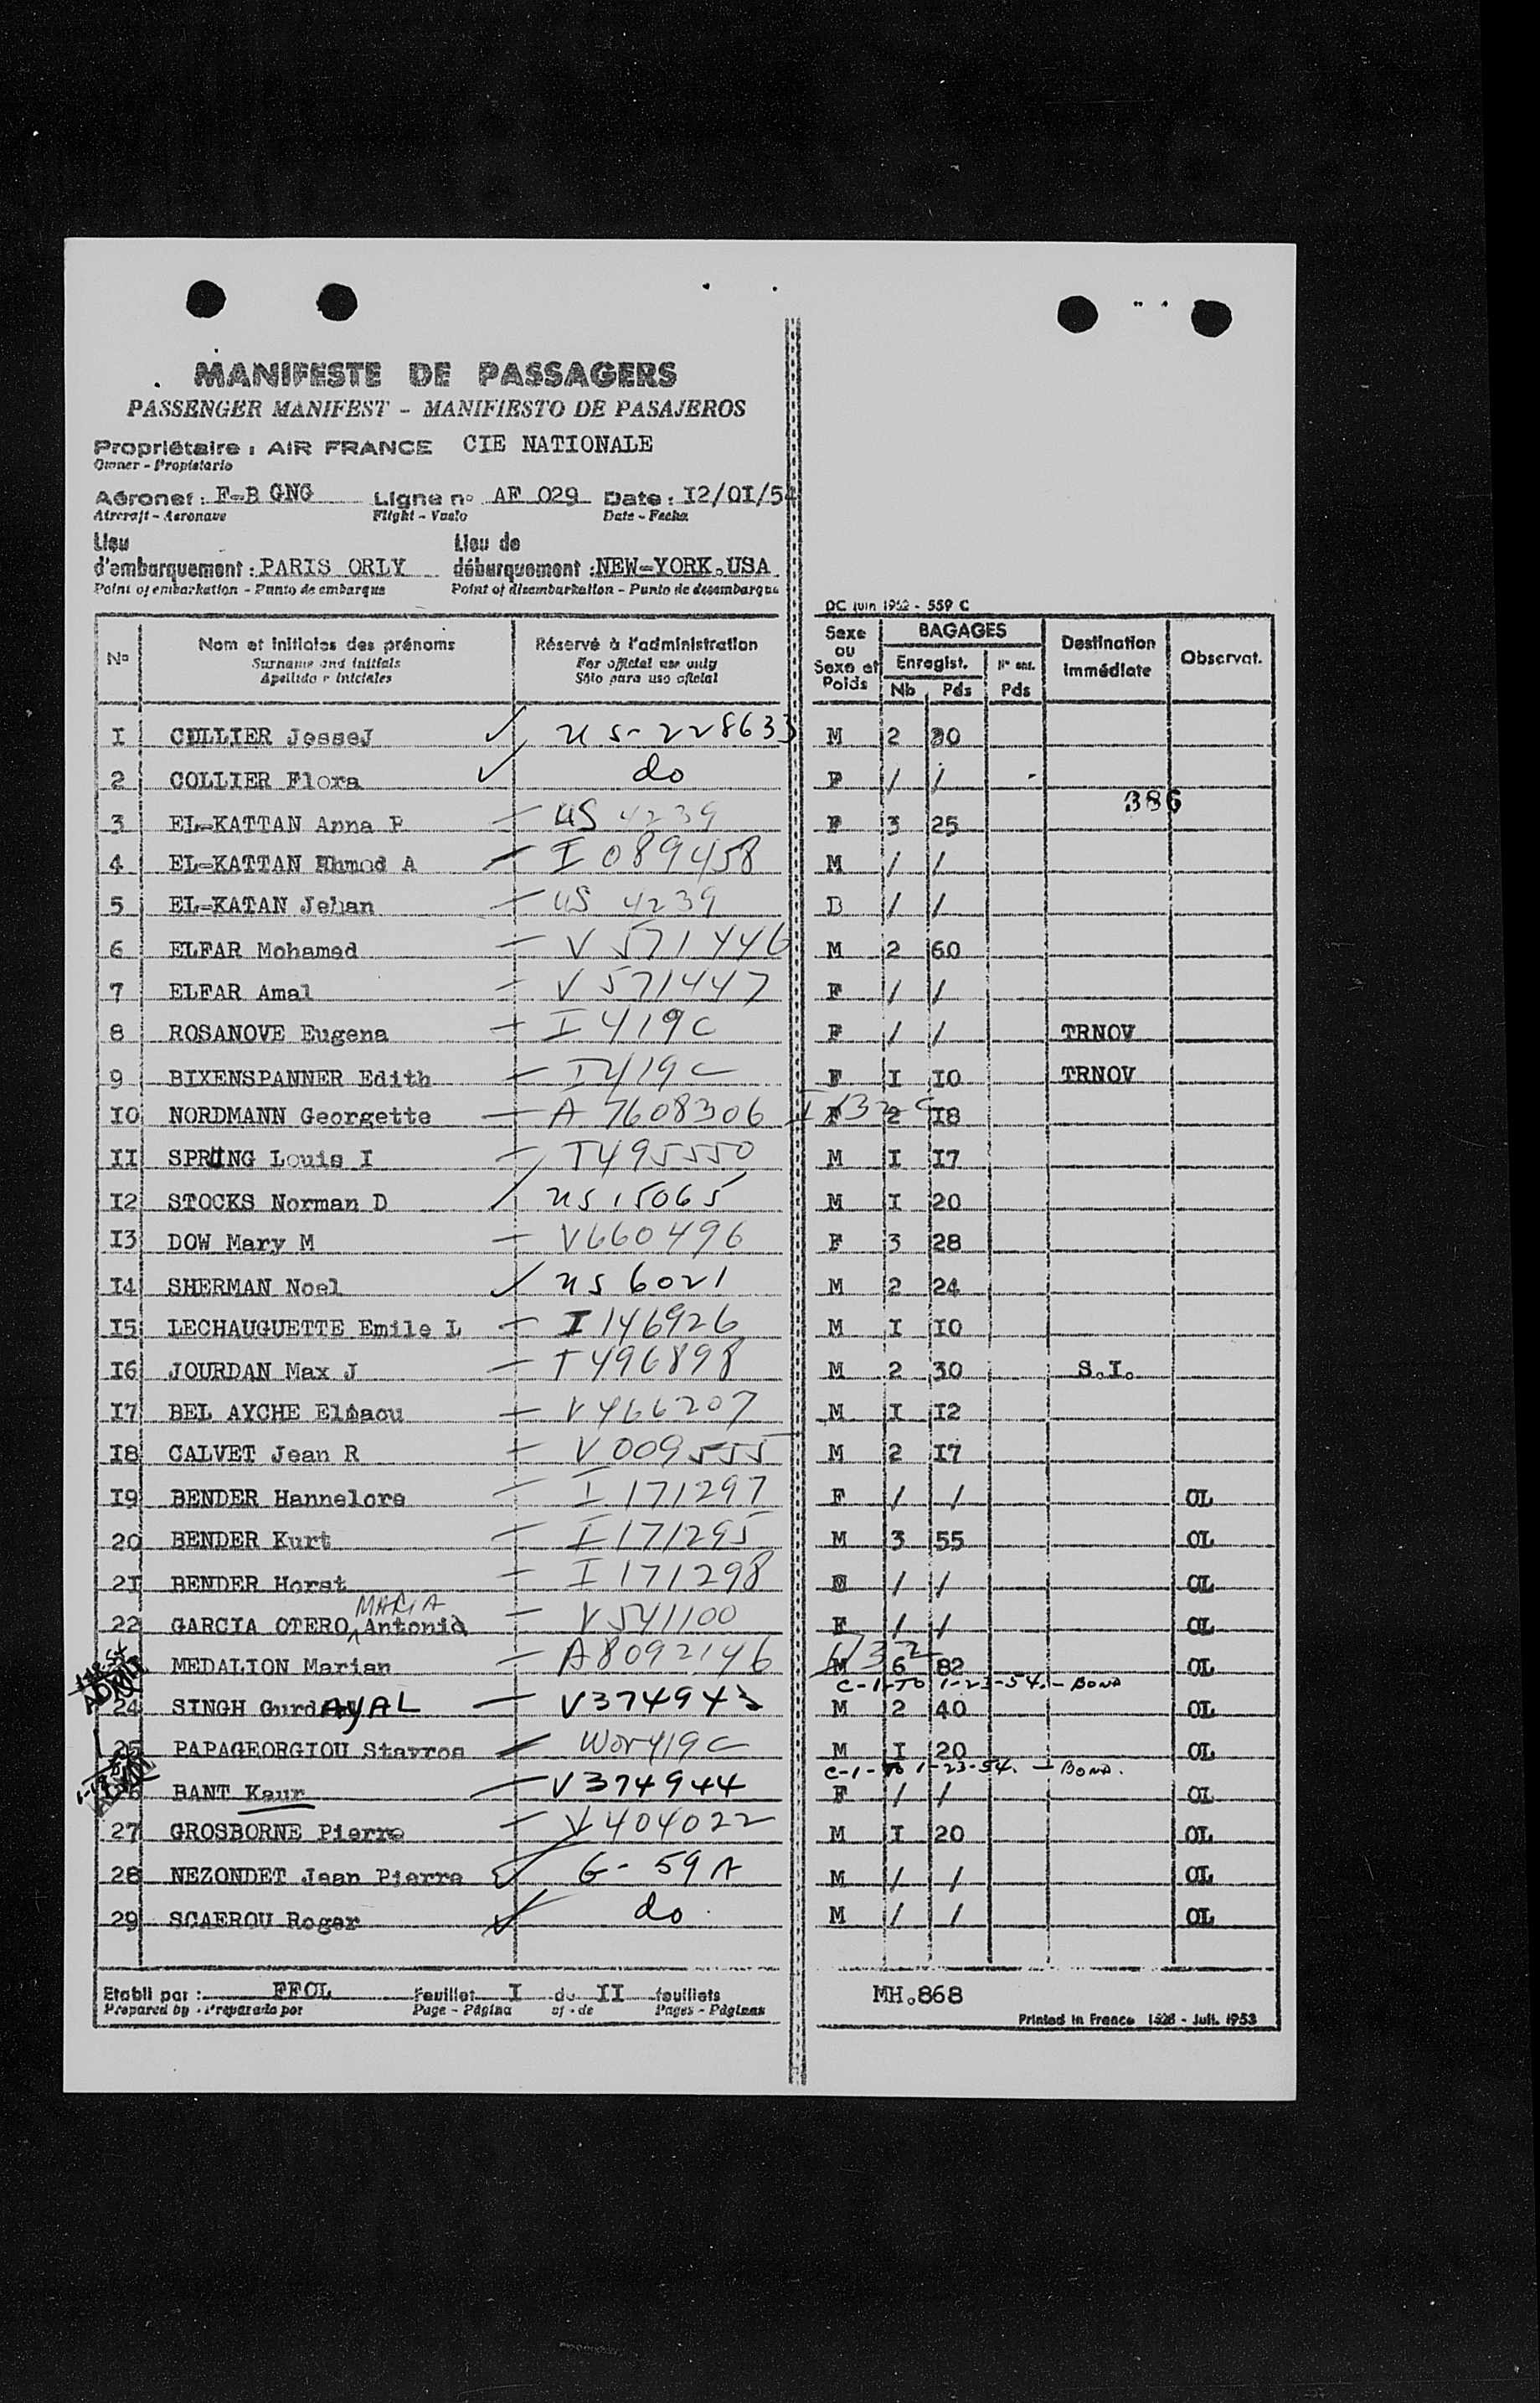 MANIFESTE DE PASSAGERS
PASSENGER MANIFEST - MANIFIESTO DE PASAJEROS
Propriétaire : AIR FRANCE CIE NATIONALE
Owner - Propietario
Aéronef : F-B GNG Ligne n° AF 029 Date : I2/OI/54
Aircraft - Aeronave Flight - Vuelo Date - Fecha
Lieu d'embarquement : PARIS ORLY Lieu de débarquement : NEW-YORK.USA
Point of embarkation - Punto de embarque Point of disembarkation - Punto de desembarque
DC Juin 1952 - 559 C
N° Nom et initiales des prénoms Réservé à l'administration Sexe ou Sexe et Poids BAGAGES Destination immédiate Observat.
Surname and initials For official use only Enregist. N° enr.
Apellido e iniciales Sólo para uso oficial Nb Pds Pds
I COLLIER JesseJ US-228633 M 2 30
2 COLLIER Flora do F / /
386
3 EL-KATTAN Anna P US 4239 F 3 25
4 EL-KATTAN Ahmed A I 089458 M / /
5 EL-KATAN Jehan US 4239 B / /
6 ELFAR Mohamed V 571446 M 2 60
7 ELFAR Amal V 571447 F / /
8 ROSANOVE Eugena I 419C F / / TRNOV
9 BIXENSPANNER Edith I419C F I IO TRNOV
IO NORDMANN Georgette A 7608306 F 2 I8
II SPRUNG Louis I T495550 M I I7
I2 STOCKS Norman D US 15065 M I 20
I3 DOW Mary M V660496 F 3 28
I4 SHERMAN Noel US 6021 M 2 24
I5 LECHAUGUETTE Emile L I 146926 M I IO
I6 JOURDAN Max J T496898 M 2 30 S.I.
I7 BEL AYCHE Elmaou V466207 M I I2
I8 CALVET Jean R V 009555 M 2 I7
I9 BENDER Hannelore I 171297 F / / OL
20 BENDER Kurt I 171295 M 3 55 OL
2I BENDER Horst I 171298 / / OL
MARIA
22 GARCIA OTERO Antonia V541100 F / / OL
MEDALION Marian A8092146 M 6 82 OL
C-1-TO 1-23-54. - BOND
24 SINGH GurdAYAL V374943 M 2 40 OL
25 PAPAGEORGIOU Stavros Wor419C M I 20 OL
C-1-TO 1-23-54. - BOND.
BANT Kaur V374944 F / / OL
27 GROSBORNE Pierre V404022 M I 20 OL
28 NEZONDET Jean Pierre G-59A M / / OL
29 SCAEROU Roger do. M / / OL
Etabli par : FFOL Feuillet I de II feuillets MH.868
Prepared by - Preparado por Page - Página of - de Pages - Páginas
Printed in France 1528 - Juil. 1953